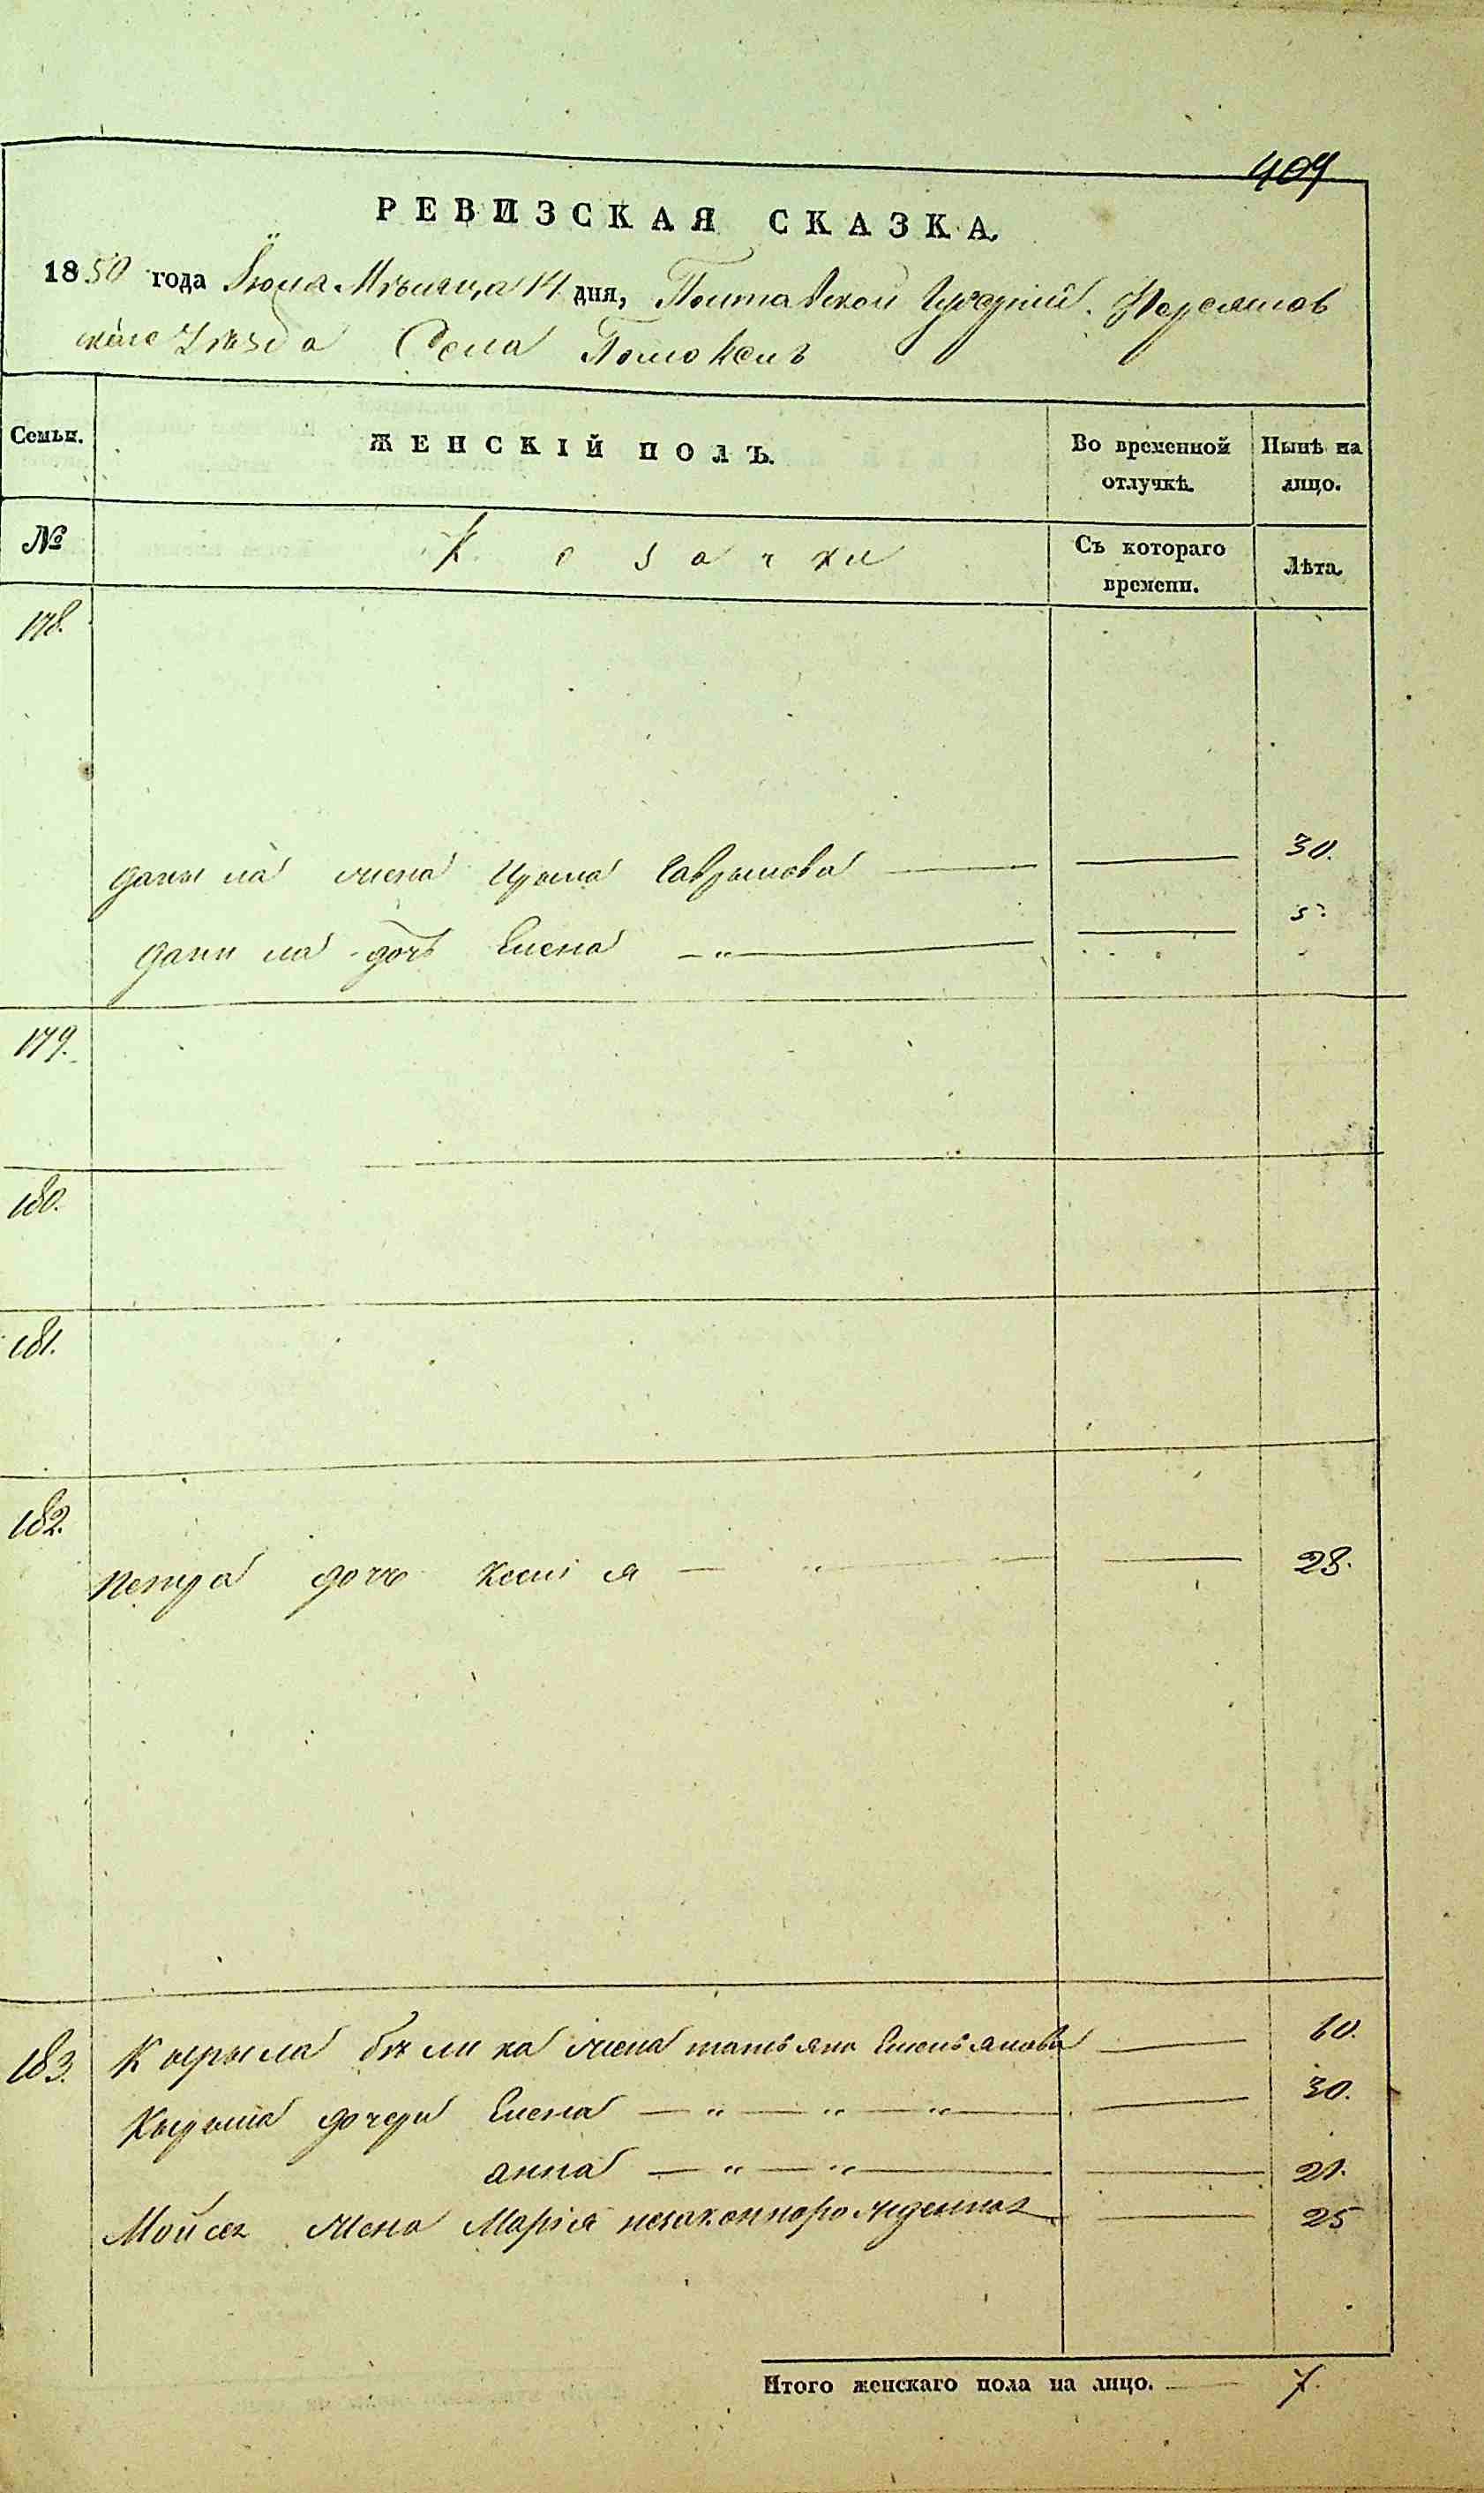 409
РЕВИЗСКАЯ СКАЗКА.
1850 года Іюля Мѣсяца 14 дня, Полтавской Губерніи Переяслов
скаго Уѣзда Села Помоклъ
Семьи. ЖЕНСКІЙ ПОЛЪ. Во временной отлучкѣ. Нынѣ на лицо.
№ Козачки Съ котораго времени. Лѣта.
178.
Даныла жена Ирына Гаврылова 30.
Данила дочь Елена — „ 5.
179.
180.
181.
182.
Петра дочь Ксенія — „ 28.
183. Кырыла жена татьяна Емельянова 60.
Кырыла дочери Елена — „ — „ — „ 30.
анна — „ — „ 21.
Мойсея жена Марія незаконнорожденная 25
Итого женскаго пола на лицо. 7.